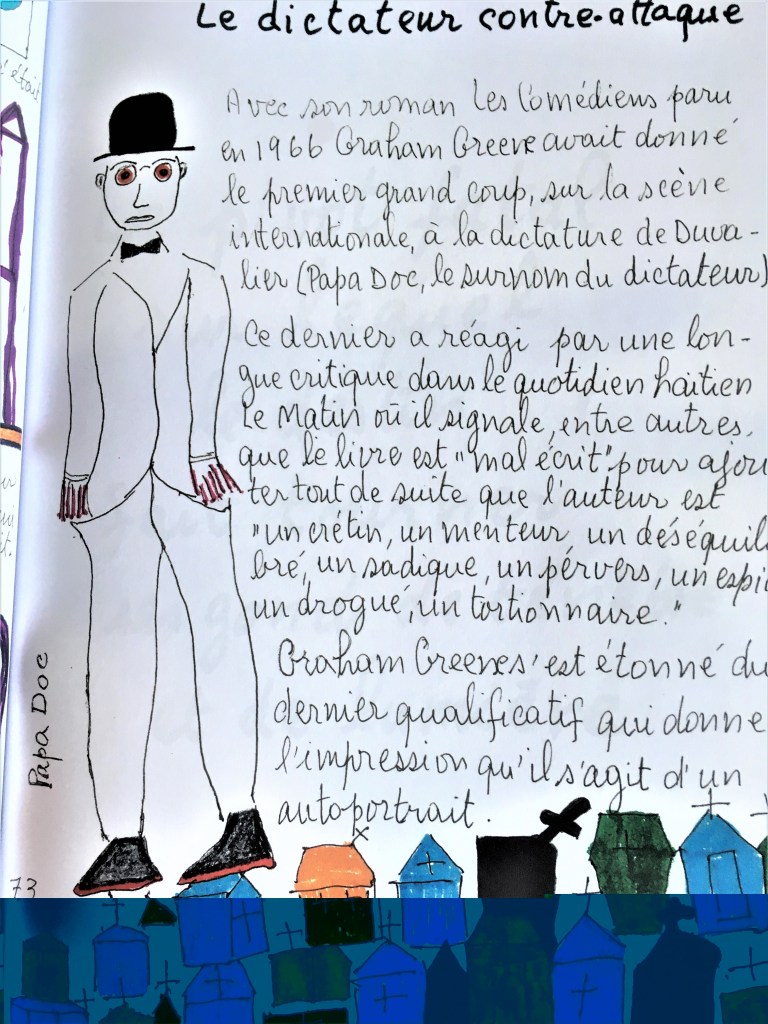 Le dictateur contre-attaque
Avec son roman Les Comédiens paru
en 1966 Graham Greene avait donné
le premier grand coup, sur la scène
internationale, à la dictature de Duva-
lier (Papa Doc, le surnom du dictateur)
Ce dernier a réagi par une lon-
gue critique dans le quotidien haïtien
Le Matin où il signale, entre autres,
que le livre est "mal écrit" pour ajou
ter tout de suite que l'auteur est
"un crétin, un menteur, un déséquil
bré, un sadique, un pervers, un espi
un drogué, un tortionnaire."
Graham Greene s'est étonné du
dernier qualificatif qui donne
l'impression qu'il s'agit d'un
autoportrait.
Papa Doc
73